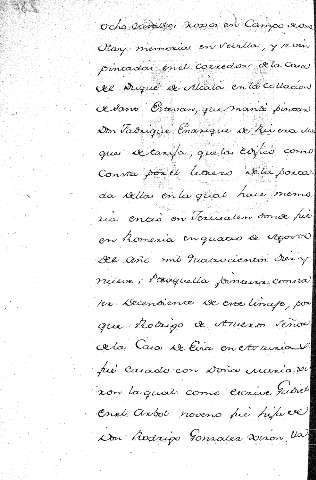 ocho Roxos en Campo de oro
Hay memoria en Sevilla, y son
pintadas en el corredor de la Casa
del Duque de Alcala en la Collacion
de Santo Estevan, que mando pintar
Don Fadrique Enrriquez de Rivera Mar
ques de tarifa, que las edifico como
Consta por el letrero de la porta
da dellas en la qual hace memo
ria entró en Jerusalem donde fue
en Romeria en quatro de Agosto
del año mil quinientos diez y
nueve; Y aquella pintura consta
ser decendiente de este linage, por
que Rodrigo de Señor
de la Casa de en Asturias
fue casado con Doña Maria
la qual como escrive Gudiel
en el Arbol noveno fue hija de
Don Rodrigo Gonzales